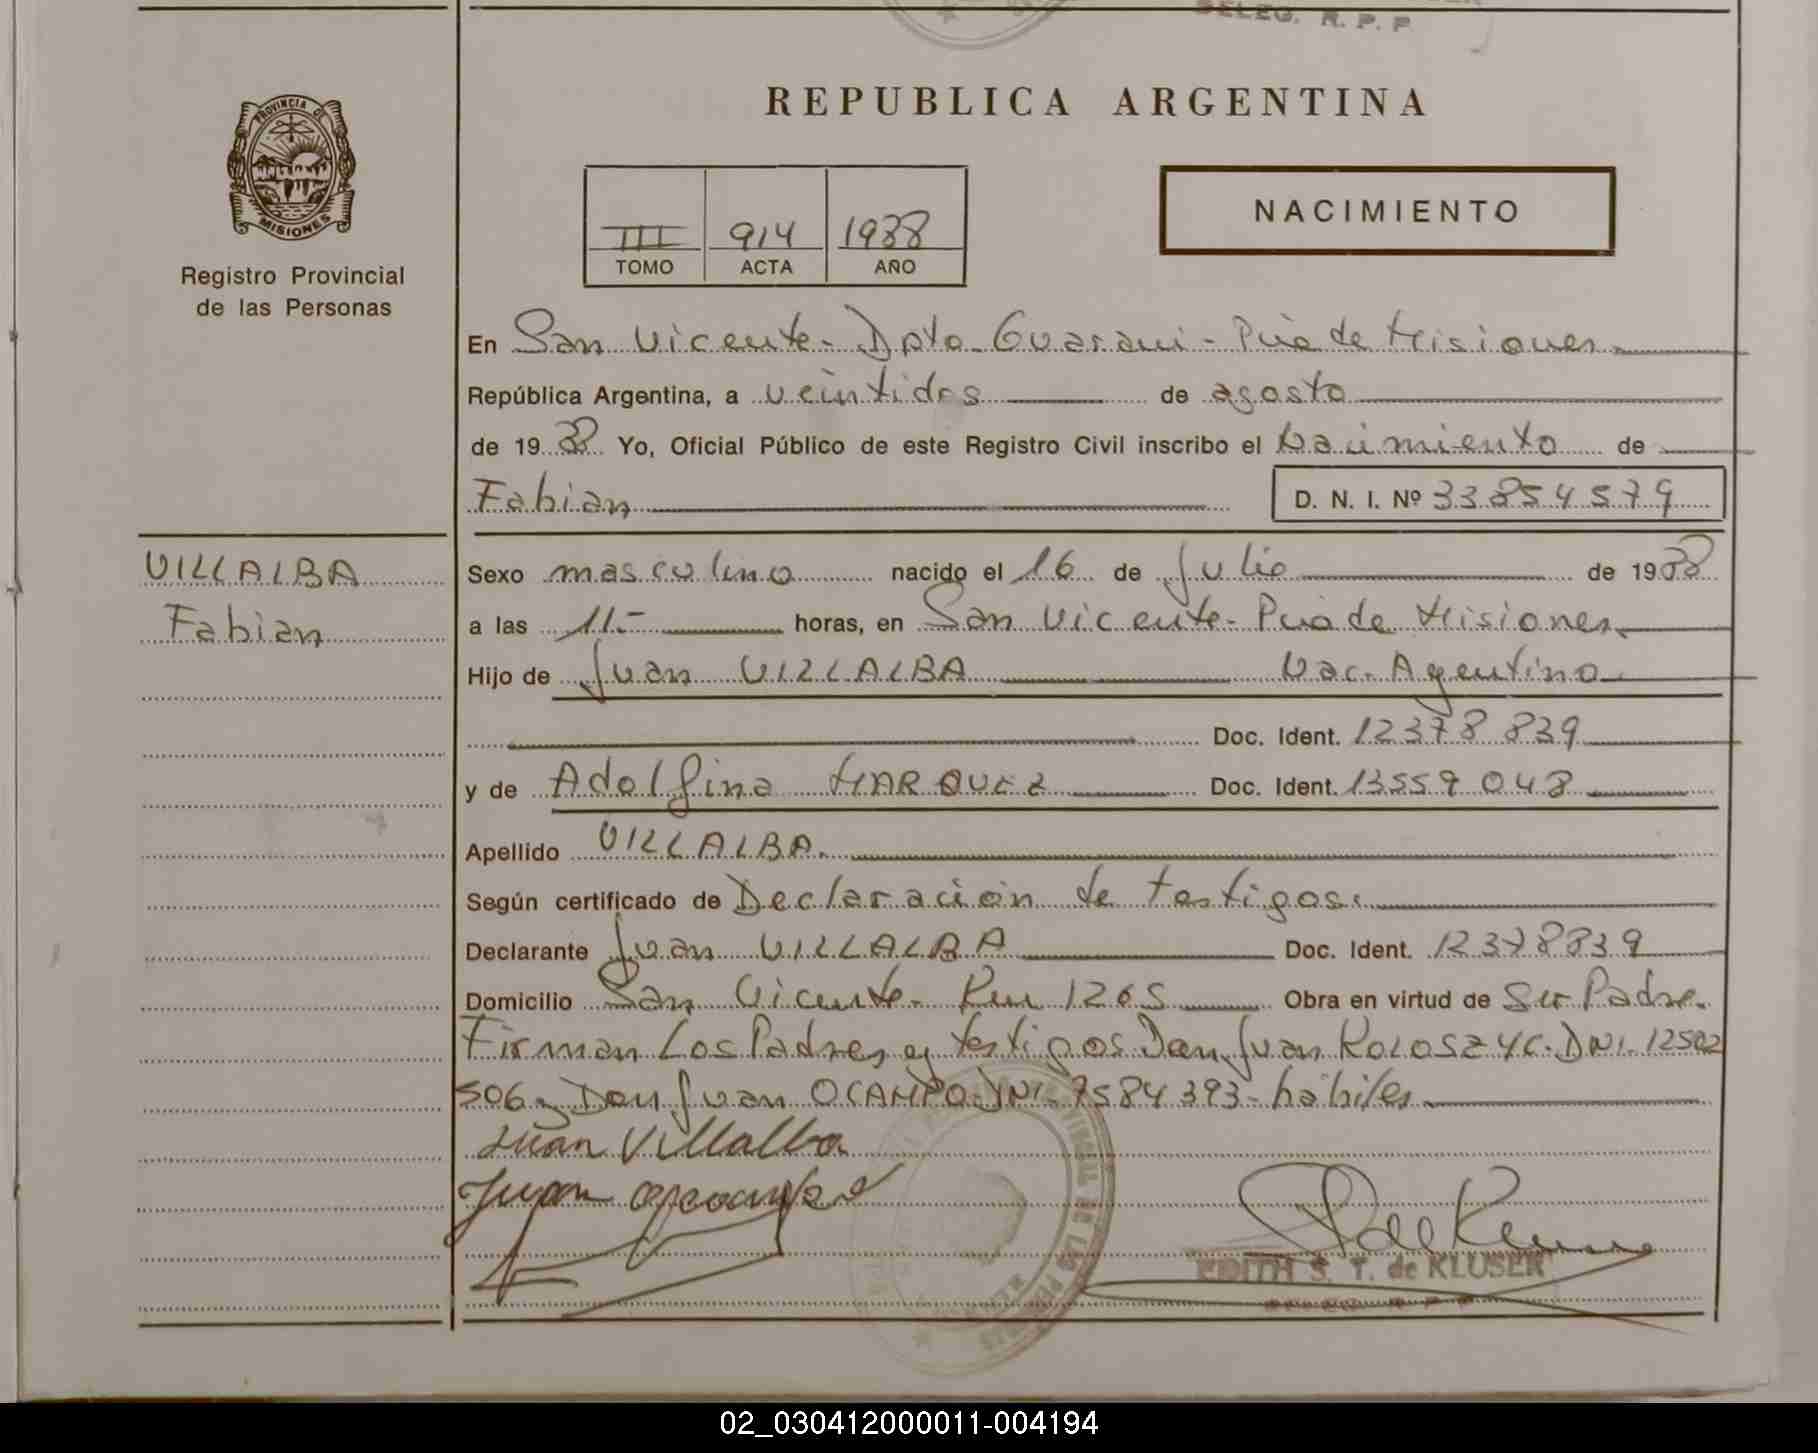 DELEG. R. P. P
PROVINCIA DE
MISIONES
Registro Provincial
de las Personas
REPUBLICA ARGENTINA
III 914 1988
TOMO ACTA AÑO
NACIMIENTO
En San Vicente - Dpto. Guarani - Pcia de Misiones
República Argentina, a veintidos de agosto
de 19 88 Yo, Oficial Público de este Registro Civil inscribo el Nacimiento de
Fabian D. N. I. Nº 33854579
VILLALBA
Fabian
Sexo masculino nacido el 16 de Julio de 1988
a las 11.- horas, en San Vicente - Pcia de Misiones
Hijo de Juan VILLALBA Nac. Agentino
Doc. Ident. 12378839
y de Adolfina MARQUEZ Doc. Ident. 13559048
Apellido VILLALBA.
Según certificado de Declaración de testigos.
Declarante Juan VILLALBA Doc. Ident. 12378839
Domicilio San Vicente - Km 1265 Obra en virtud de Ser Padre.
Firman Los Padres y testigos Don Juan KOLOSZYC. DNI. 12502
506 y Don Juan OCAMPO DNI- 7584393- habiles
Juan Villalba
Juan ocampo
EDITH S. T. de KLUSER
02_030412000011-004194